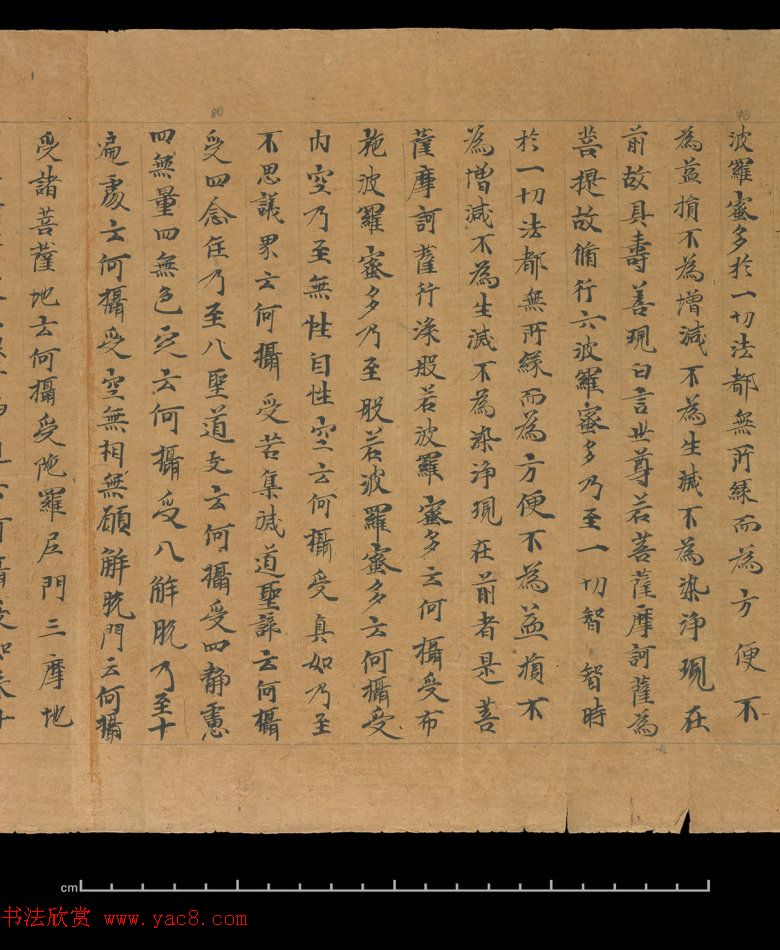 70
波羅蜜多於一切法都無所緣而為方便不
為益損不為增減不為生滅不為染淨現在
前故具壽善現白言世尊若菩薩摩訶薩為
菩提故脩行六波羅蜜多乃至一切智智時
於一切法都無所緣而為方便不為益損不
為增減不為生滅不為染淨現在前者是菩
薩摩訶薩行深般若波羅蜜多云何攝受布
施波羅蜜多乃至般若波羅蜜多云何攝受
内空乃至無性自性空云何攝受真如乃至
80
不思議界云何攝受苦集滅道聖諦云何攝
受四念住乃至八聖道支云何攝受四靜慮
四無量四無色定云何攝受八解脫乃至十
遍處云何攝受空無相無願解脫門云何攝
受諸菩薩地云何攝受陀羅尼門三摩地
cm
书法欣赏 www.yac8.com